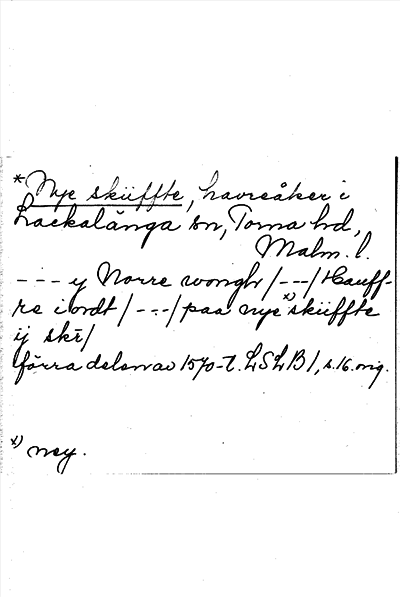 *Nye sküffte, havreåker i
Lackalänga sn, Torna hd,
Malm. l.
--- y Norre wongh/---/Hauff-
re iordt/---/paa nye x) sküffte
ij skr̄/
förra delen av 1570-t. LSLB1, s. 16. orig.
x) ney.